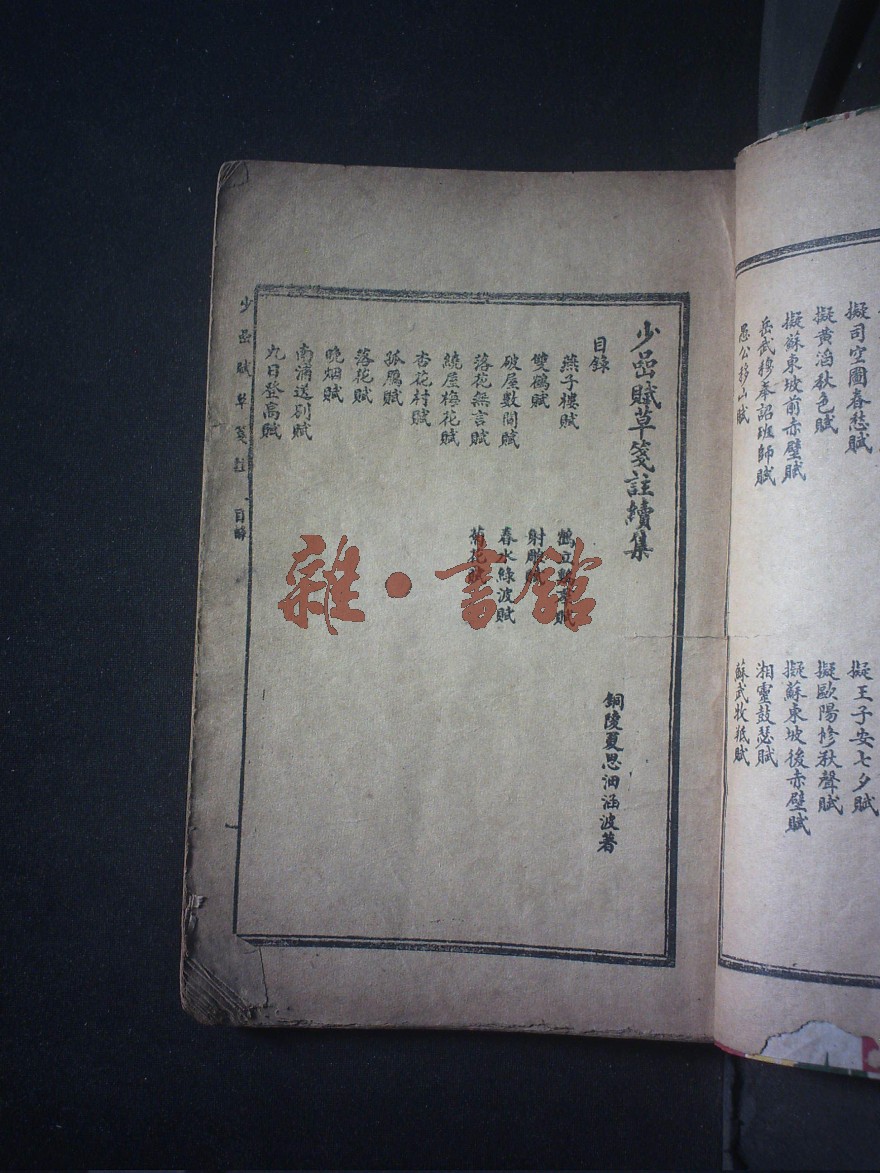 擬司空圖春愁賦 擬王子安七夕賦
擬黃滔秋色賦 擬歐陽修秋聲賦
擬蘇東坡前赤壁賦 擬蘇東坡後赤壁賦
岳武穆奉詔班師賦 湘靈鼓瑟賦
愚公移山賦 蘇武牧羝賦
少嵒賦草箋註續集
銅陵夏思沺涵波著
目錄
燕子樓賦 鶴立雞羣賦
雙鵰賦 射鵰賦
破屋數間賦 春水綠波賦
落花無言賦 菊花賦
繞屋梅花賦
杏花村賦
孤鴈賦
落花賦
晚烟賦
南浦送別賦
九日登高賦
少嵒賦草箋註 目錄
雜·書館